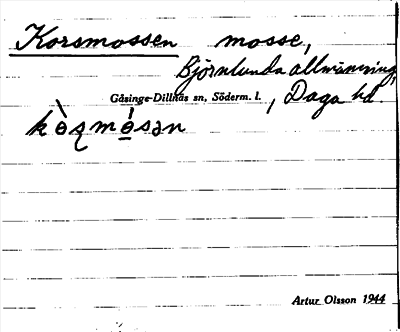 Korsmossen mosse,
Björnlunda allmänning,
Gåsinge-Dillnäs sn, Söderm. l., Daga hd.
kòʂmósən
Artur Olsson 1944